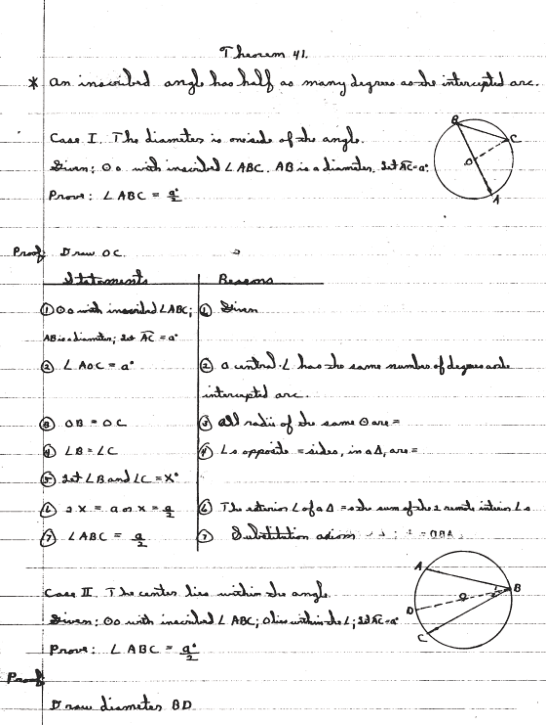 Theorem 41.
* An inscribed angle has half as many degrees as the intercepted arc.
Case I. The diameter is one side of the angle.
Given: ⊙O with inscribed ∠ABC. AB is a diameter. Let AC = a°
Prove: ∠ABC = a°/2
B
C
O
A
Proof: Draw OC.
Statements Reasons
① ⊙O with inscribed ∠ABC; ① Given
AB is a diameter; Let AC = a°
② ∠AOC = a° ② A central ∠ has the same number of degrees as the
intercepted arc.
③ OB = OC ③ All radii of the same ⊙ are =
④ ∠B = ∠C ④ ∠s opposite = sides, in a Δ, are =
⑤ Let ∠B and ∠C = X°
⑥ 2x = a or x = a/2 ⑥ The exterior ∠ of a Δ = to the sum of the 2 remote interior ∠s
⑦ ∠ABC = a/2 ⑦ Substitution axiom
Case II. The center lies within the angle.
Given: ⊙O with inscribed ∠ABC; O lies within the ∠; Let AC = a°
Prove: ∠ABC = a°/2
A
B
O
D
C
Proof
Draw diameter BD